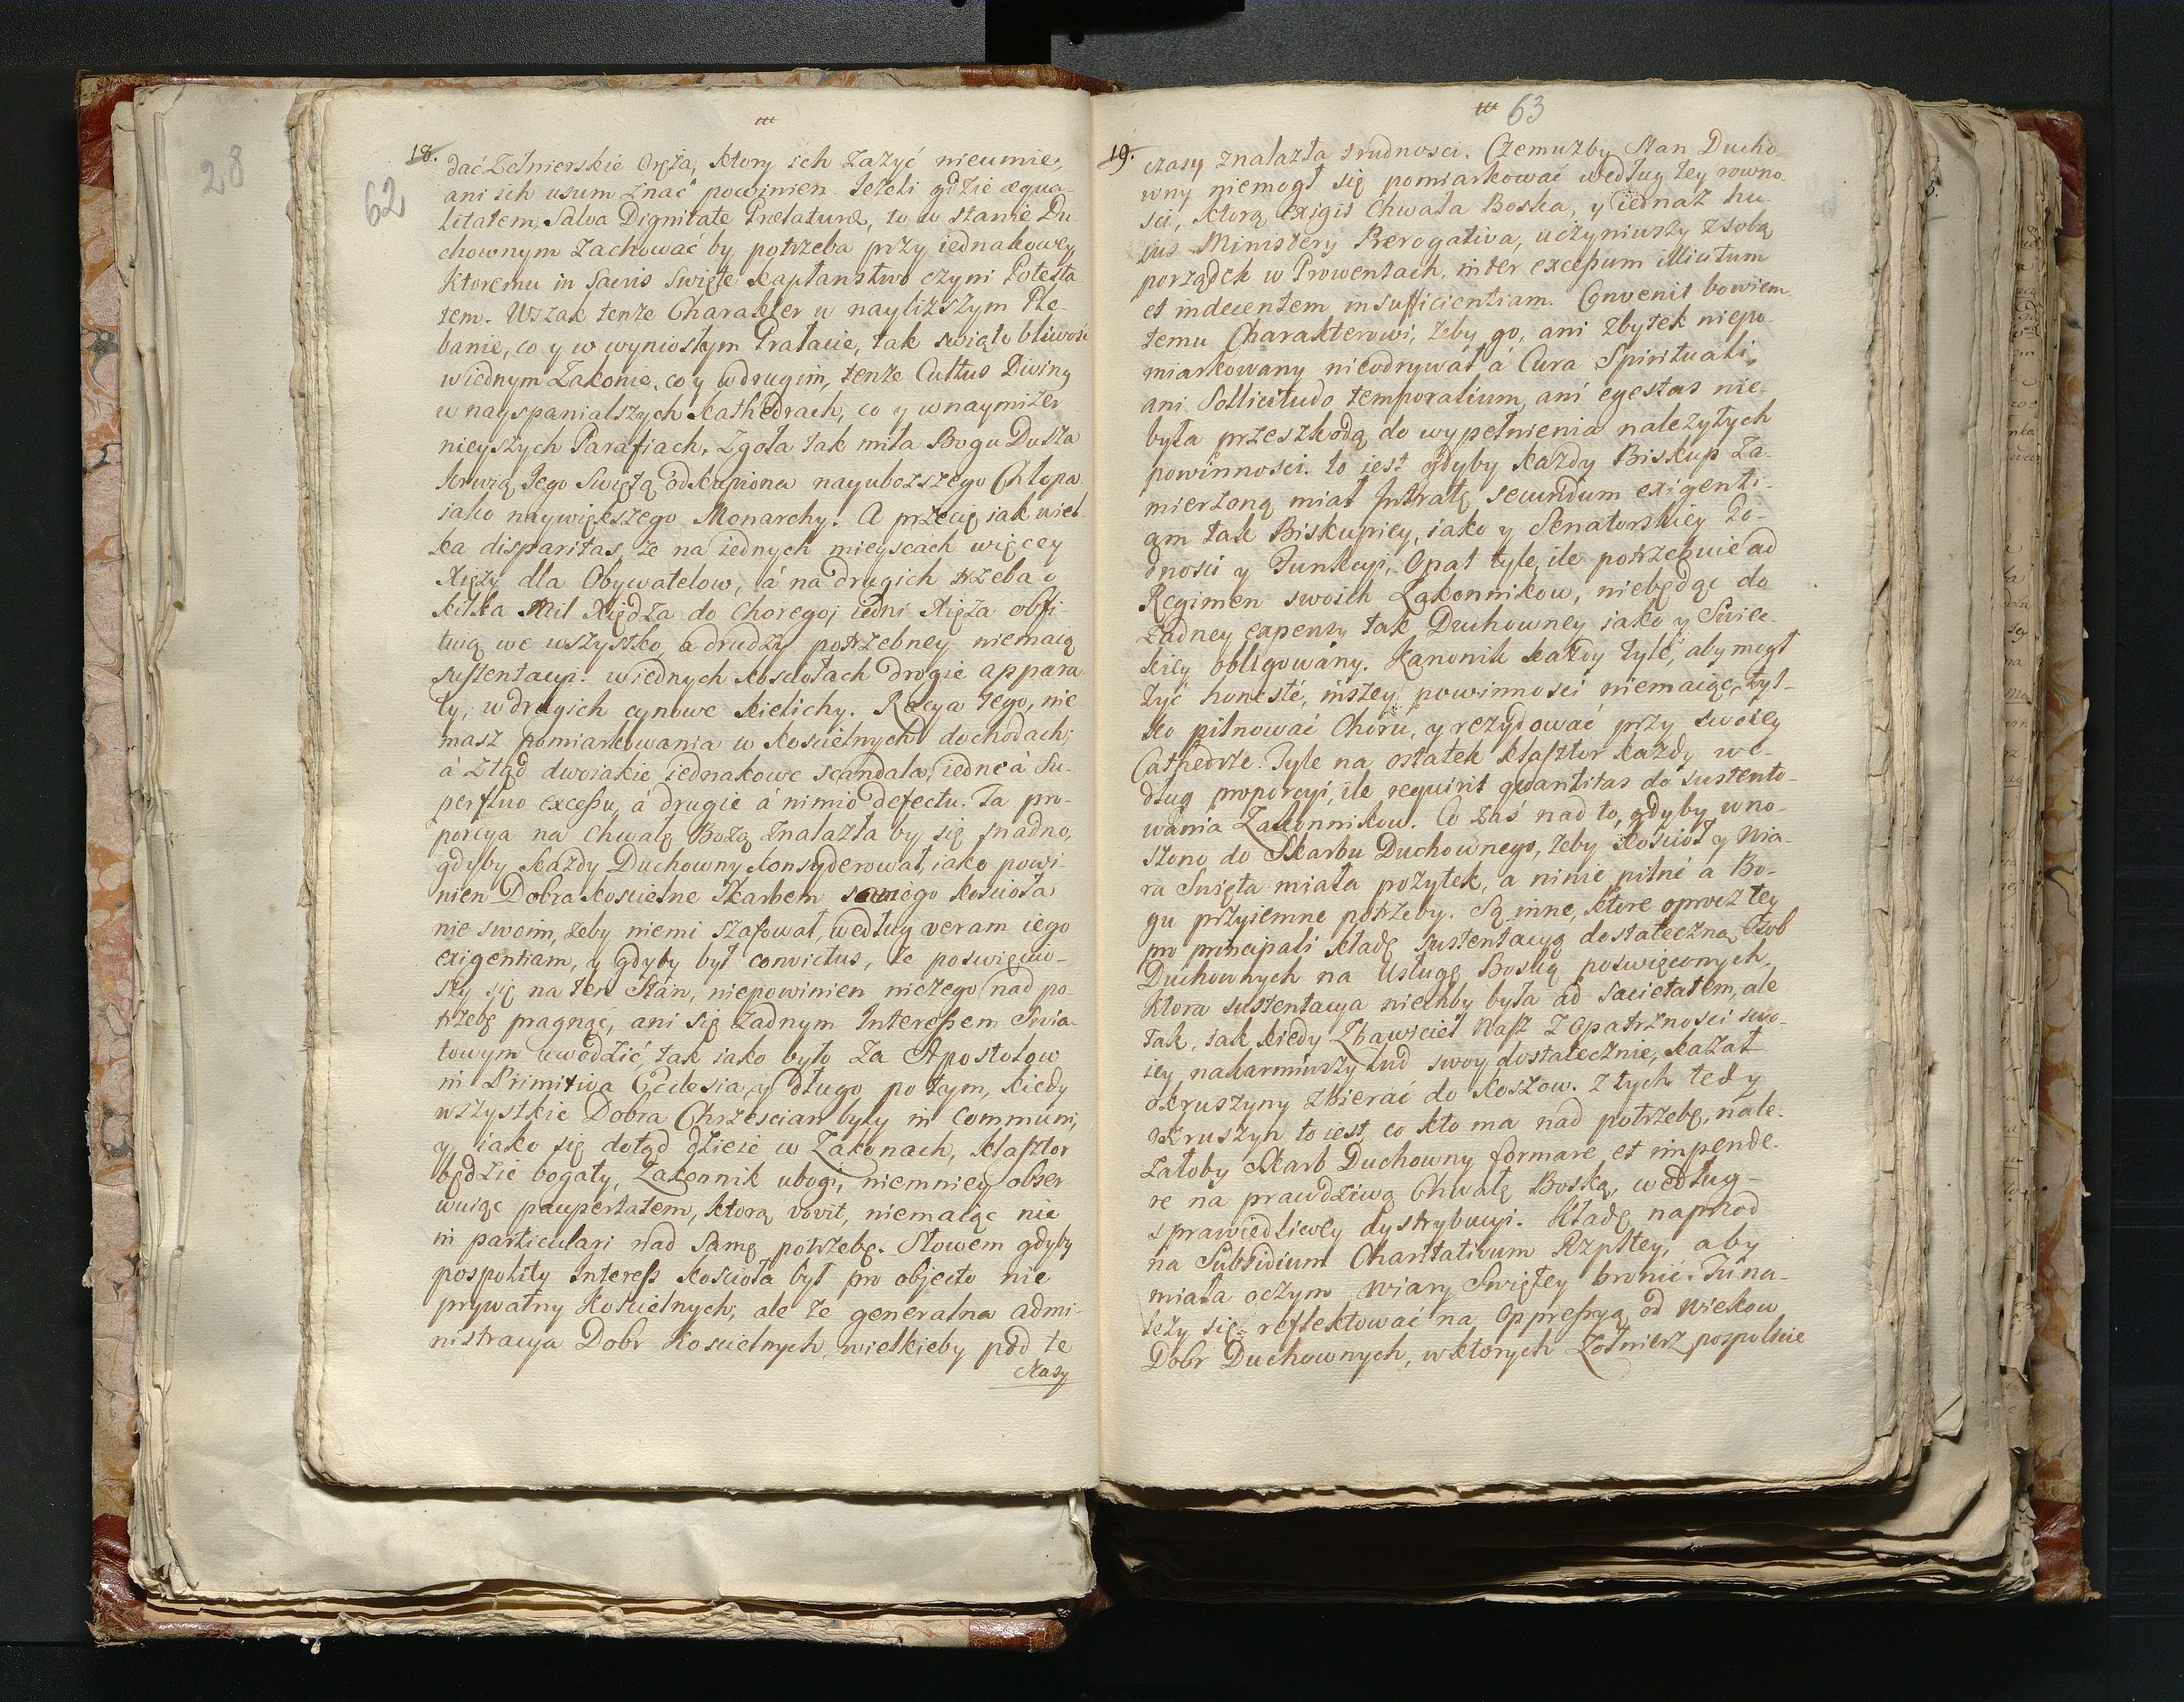 28
62
18.
dać Zołnierskie Oręża, ktory ich zażyć nieumie,
ani ich usum znać powinien. Jeżeli gdzie æqua-
litatem, Salva Dignitate Prælaturæ, to w stanie Du
chownym zachować by potrzeba przy iednakowey
ktoremu in Sacris Swięte Kapłanstwo czyni Potesta
tem. Wszak tenże Charakter w nayliższym Ple-
banie, co y w wyniosłym Prałacie, tak swiątobliwość
wiednym Zakonie, co y wdrugim, tenże Cultus Diviny
w nayspanialszych Kathedrach, co y wnaymizer
nieyszych Parafiach. Zgoła tak miła Bogu Dusza
krwią Jego Swiętą odkupiona nayuboższego Chłopa
iako naywiększego Monarchy. A przecię iak wiel-
ka disparitas, że na iednych mieyscach więcey
Xięży dla Obywatelow, á na drugich trzeba o
kilka Mil Xiędza do Chorego; iedni Xięża obfi-
tuią we wszystko, a drudzy potrzebney niemaią
sustentacyi: wiednych kosciołach drogie appara
ty, wdrugich cynowe kielichy. Racya tego, nie
masz pomiarkowania w koscielnych dochodach;
á ztąd dwoiakie iednakowe scandala, iedne á Su-
perfluo excessu, á drugie á nimio defectu. Ta pro-
porcya na Chwałę Bożą znalazła by się snadno,
gdyby każdy Duchowny konsyderował, iako powi-
nien Dobra koscielne Skarbem samego koscioła
nie swoim, żeby niemi szafował, według veram iego
exigentiam, y gdyby był convictus, że poswięciw-
szy się na ten Stan, niepowinien niczego nad po-
trzebę pragnąć, ani się żadnym Interessem Swia-
towym uwodzić, tak iako było za Apostołow
in Primitiva Ecclesia, y długo po tym, kiedy
wszystkie Dobra Chrzescian były in communi,
y iako się dotąd dzieie w Zakonach, klasztor
będzie bogaty, Zakonnik ubogi, niemniey obser
wuiąc paupertatem, ktorą vovit, niemaiąc nic
in particulari nad samę potrzebę. Słowem gdyby
pospolity Interess koscioła był pro objecto nie
prywatny Koscielnych; ale że generalna admi-
nistracya Dobr Koscielnych wielkieby pod te
czasy
63
19.
czasy znalazła trudnosci. Czemużby Stan Ducho-
wny niemogł się pomiarkować według tey rowno-
sci, ktorą exigit Chwała Boska, y iednaż hu-
ius Ministerij Prerogativa, uczyniwszy z sobą
porządek w Prowentach, inter excessum illicitum
et indecentem insufficientiam. Convenit bowiem
temu Charakterowi, żeby go, ani zbytek niepo-
miarkowany nieodrywał á Cura Spirituali,
ani Sollicitudo temporalium, ani egestas nie-
była przeszkodą do wypełnienia należytych
powinnosci. to iest gdyby każdy Biskup za-
mierzoną miał Intratę secundum exigenti-
am tak Biskupiey, iako y Senatorskiey Go-
dnosci y Funkcyi, Opat tyle, ile potrzebuie ad
Regimen swoich Zakonnikow, niebędąc do
żadney expensy tak Duchowney iako y Swiec-
kiey obligowany. Kanonik każdy tyle, aby mogł
żyć honesté, inszey powinnosci niemaiąc, tyl-
ko pilnować Choru, y rezydować przy swoiey
Cathedrze. Tyle na ostatek klasztor każdy we-
dług proporcyi, ile requirit quantitas do sustento-
wania Zakonnikow. Co zaś nad to, gdyby wno-
szono do Skarbu Duchownego, żeby kościoł y Wia-
ra Swięta miała pożytek, a ninie pilné a Bo-
gu przyiemne potrzeby. Są inne, ktore oprocz tey
pro principali kładę sustentacyą dostateczną Osob
Duchownych na Usługę Boską poswięconych,
ktora sustentacya niechby była ad Sacietatem, ale
tak, iak kiedy Zbawiciel Nasz z Opatrznosci swo-
iey nakarmiwszy lud swoy dostatecznie, kazał
okruszyny zbierać do koszow. Z tych tedy
okruszyn to iest, co kto ma nad potrzebę, nale-
żałoby Skarb Duchowny formare, et impende-
re na prawdziwą Chwałę Boską, według
sprawiedliwey dystrybucyi. Kładę naprzod
na Subsidium Charitativum Rzpltey, aby
miała oczym Wiary Swiętey bronić. Tu na-
leży się reflektować na Oppressyą od Wiekow
Dobr Duchownych, w ktorych Zołnierz pospolicie